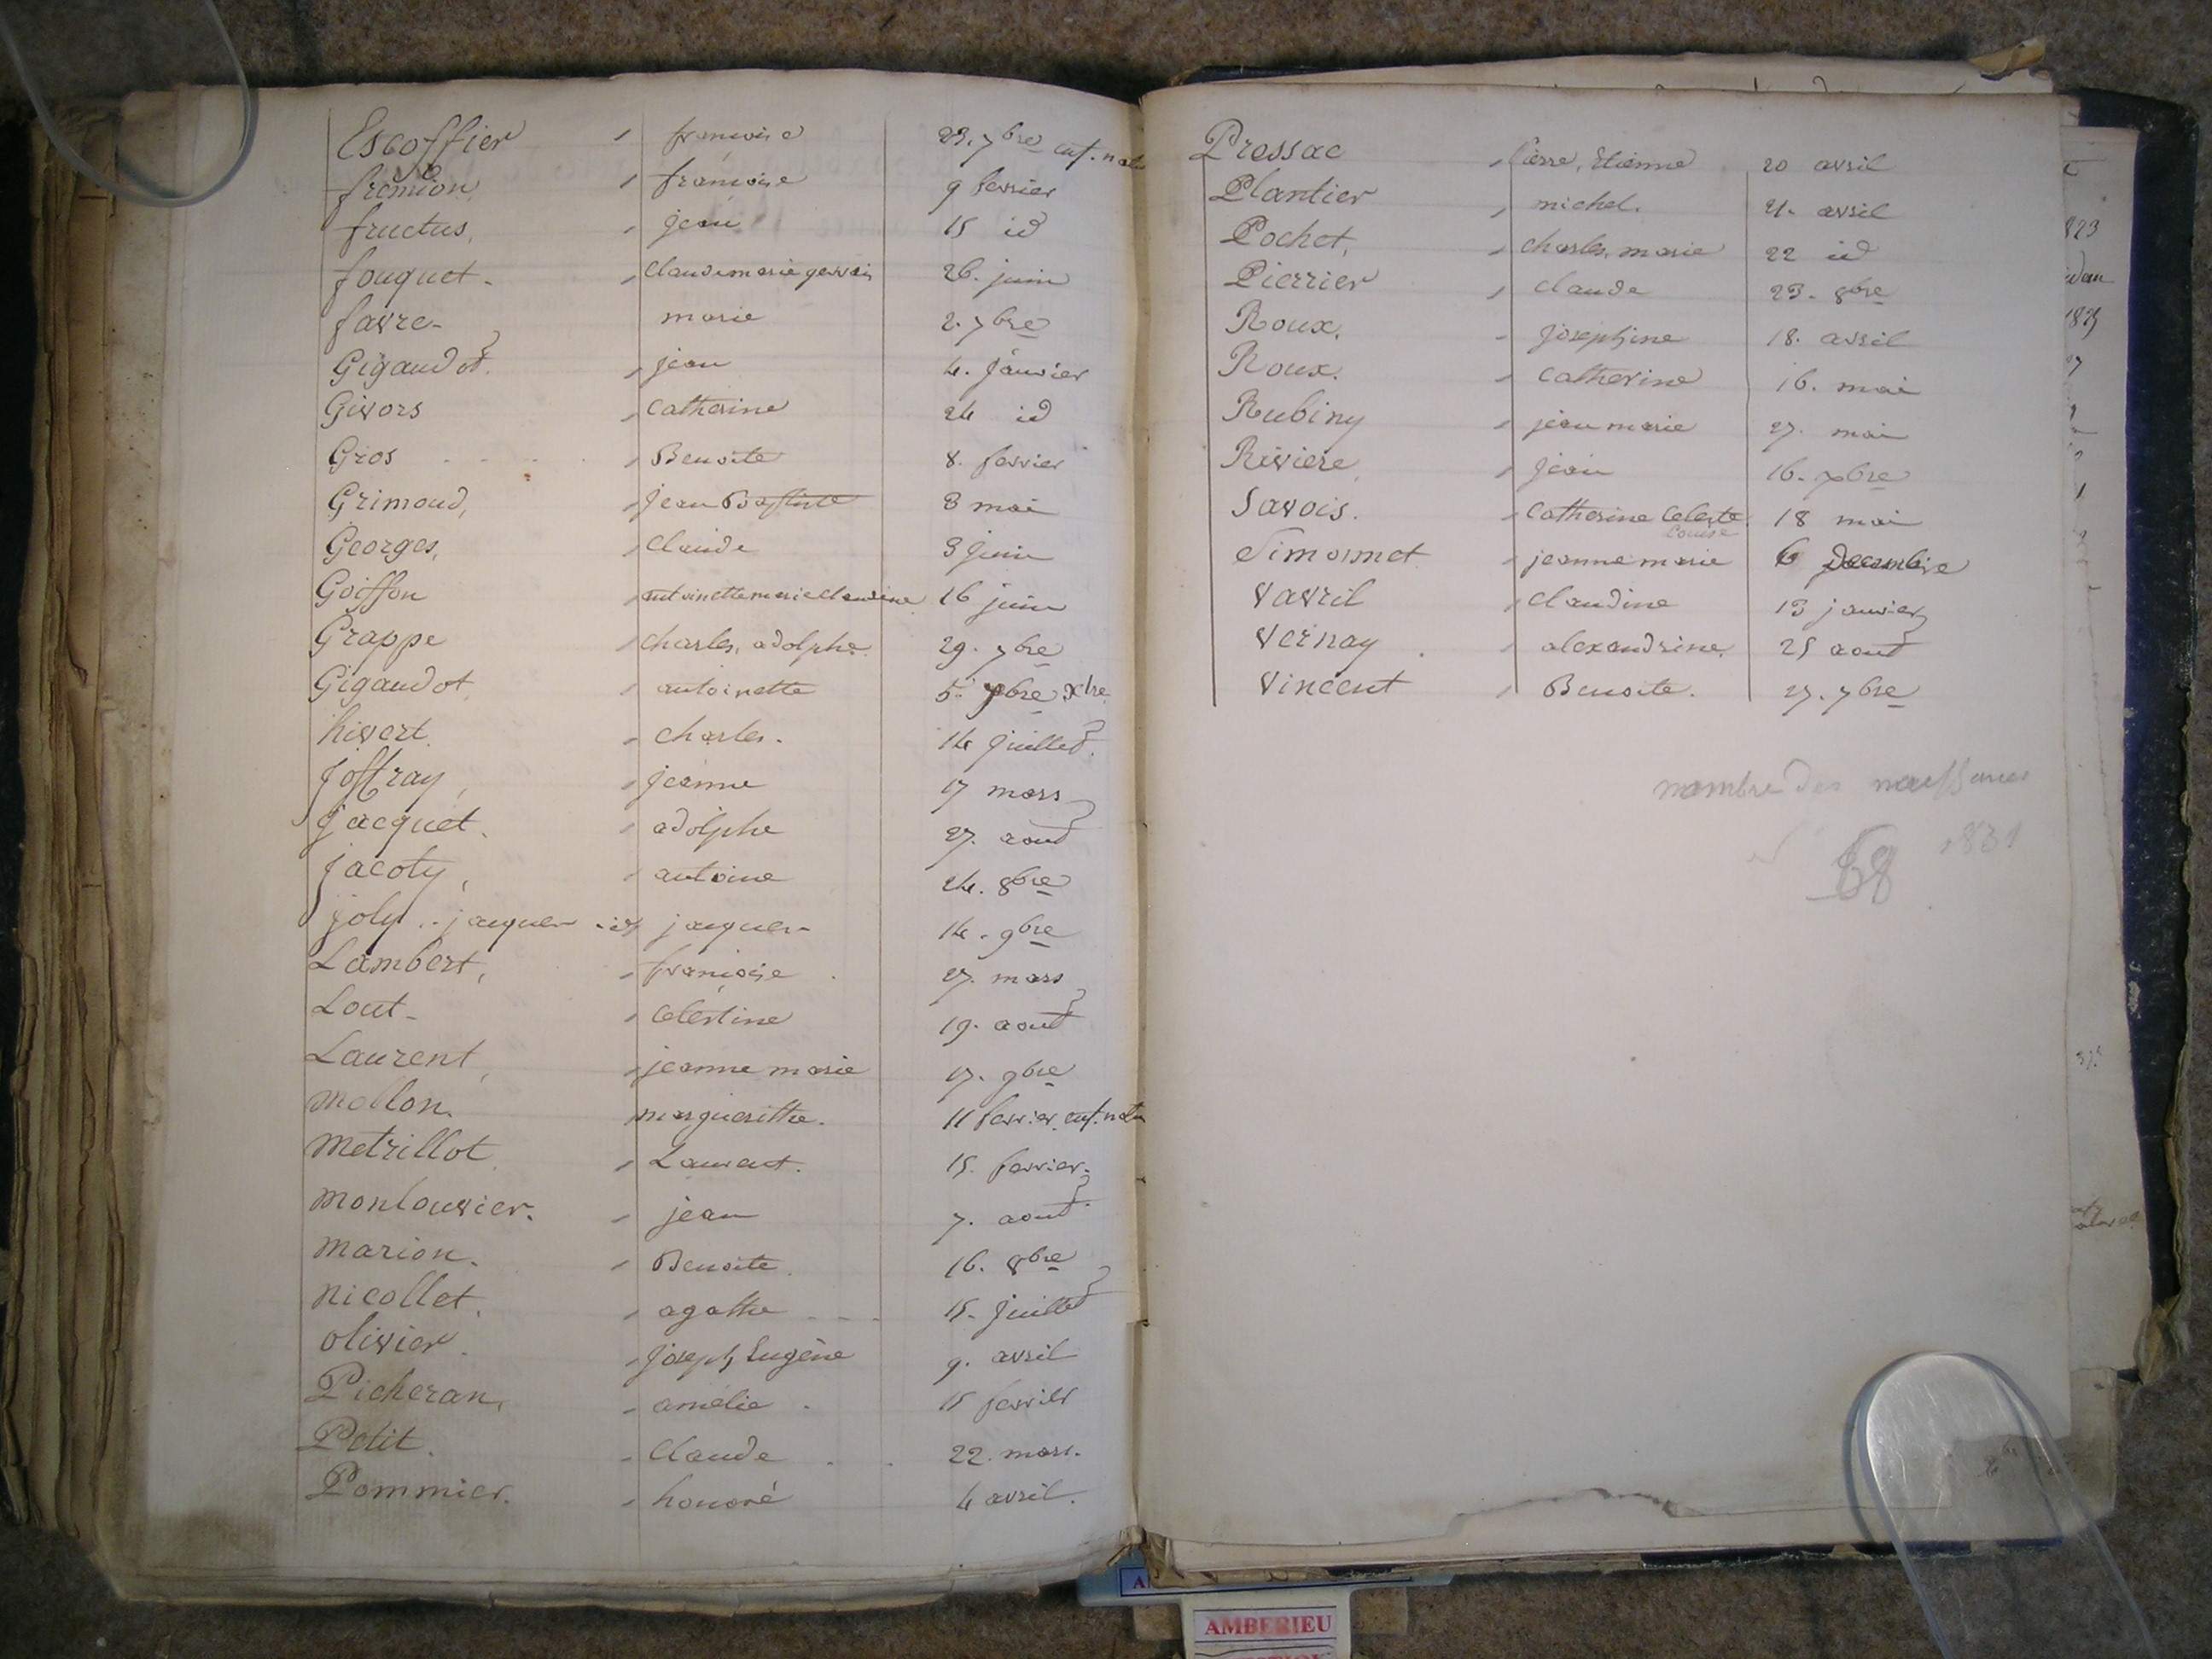 Escoffier françoise 23. 7bre enf. natu
fremion françoise 9 fevrier
fructus, jean 15 id
fouquet - Claude marie gervais 26. juin
favre - marie 2. 7bre
Gigaudot. jean 4. janvier
Givors Catherine 24 id
Gros Benoite 8. fevrier
Grimoud, jean Baptiste 8 mai
Georges, Claude 3 juin
Goiffon antoinette marie Claudine 16 juin
Grappe Charles, adolphe 29. 7bre
Gigaudot antoinette 5. xbre
hivert Charles. 14 juillet.
joffray, jeanne 17 mars
jacquet. adolphe 27. aout
jacoty, antoine 24. 8bre
joly .. jacques jacques 14. 9bre
Lambert, françoise 27. mars
Lout - Celestine 19. aout
Laurent, jeanne marie 17. 9bre
mollon. margueritte. 11 fevrier. enf. natu
metrillot Laurent. 15. fevrier.
monlouvier. jean 7. aout.
marion. Benoite. 16. 8bre
nicollet. agathe 15. juillet
olivier. joseph Eugène 9. avril
Picheran, amélie. 15 fevrier
Petit. Claude 22. mars.
Pommier. honoré 4 avril.
Pressac Pierre, Etienne 20 avril
Plantier michel. 21. avril
Pochet, Charles, marie 22 id
Pierrier Claude 23. 8bre
Roux. josephine 18. avril
Roux. Catherine 16. mai
Rubiny jean marie 27. mai
Riviere jean 16. xbre
Savois. Catherine Celeste 18 mai
Louise
Simonnet jeanne marie 6 Decembre
Vavril Claudine 13 janvier
Vernay alexandrine. 25 aout
Vincent Benoite. 27. 7bre
nombre des naissances
1831
68
AMBERIEU